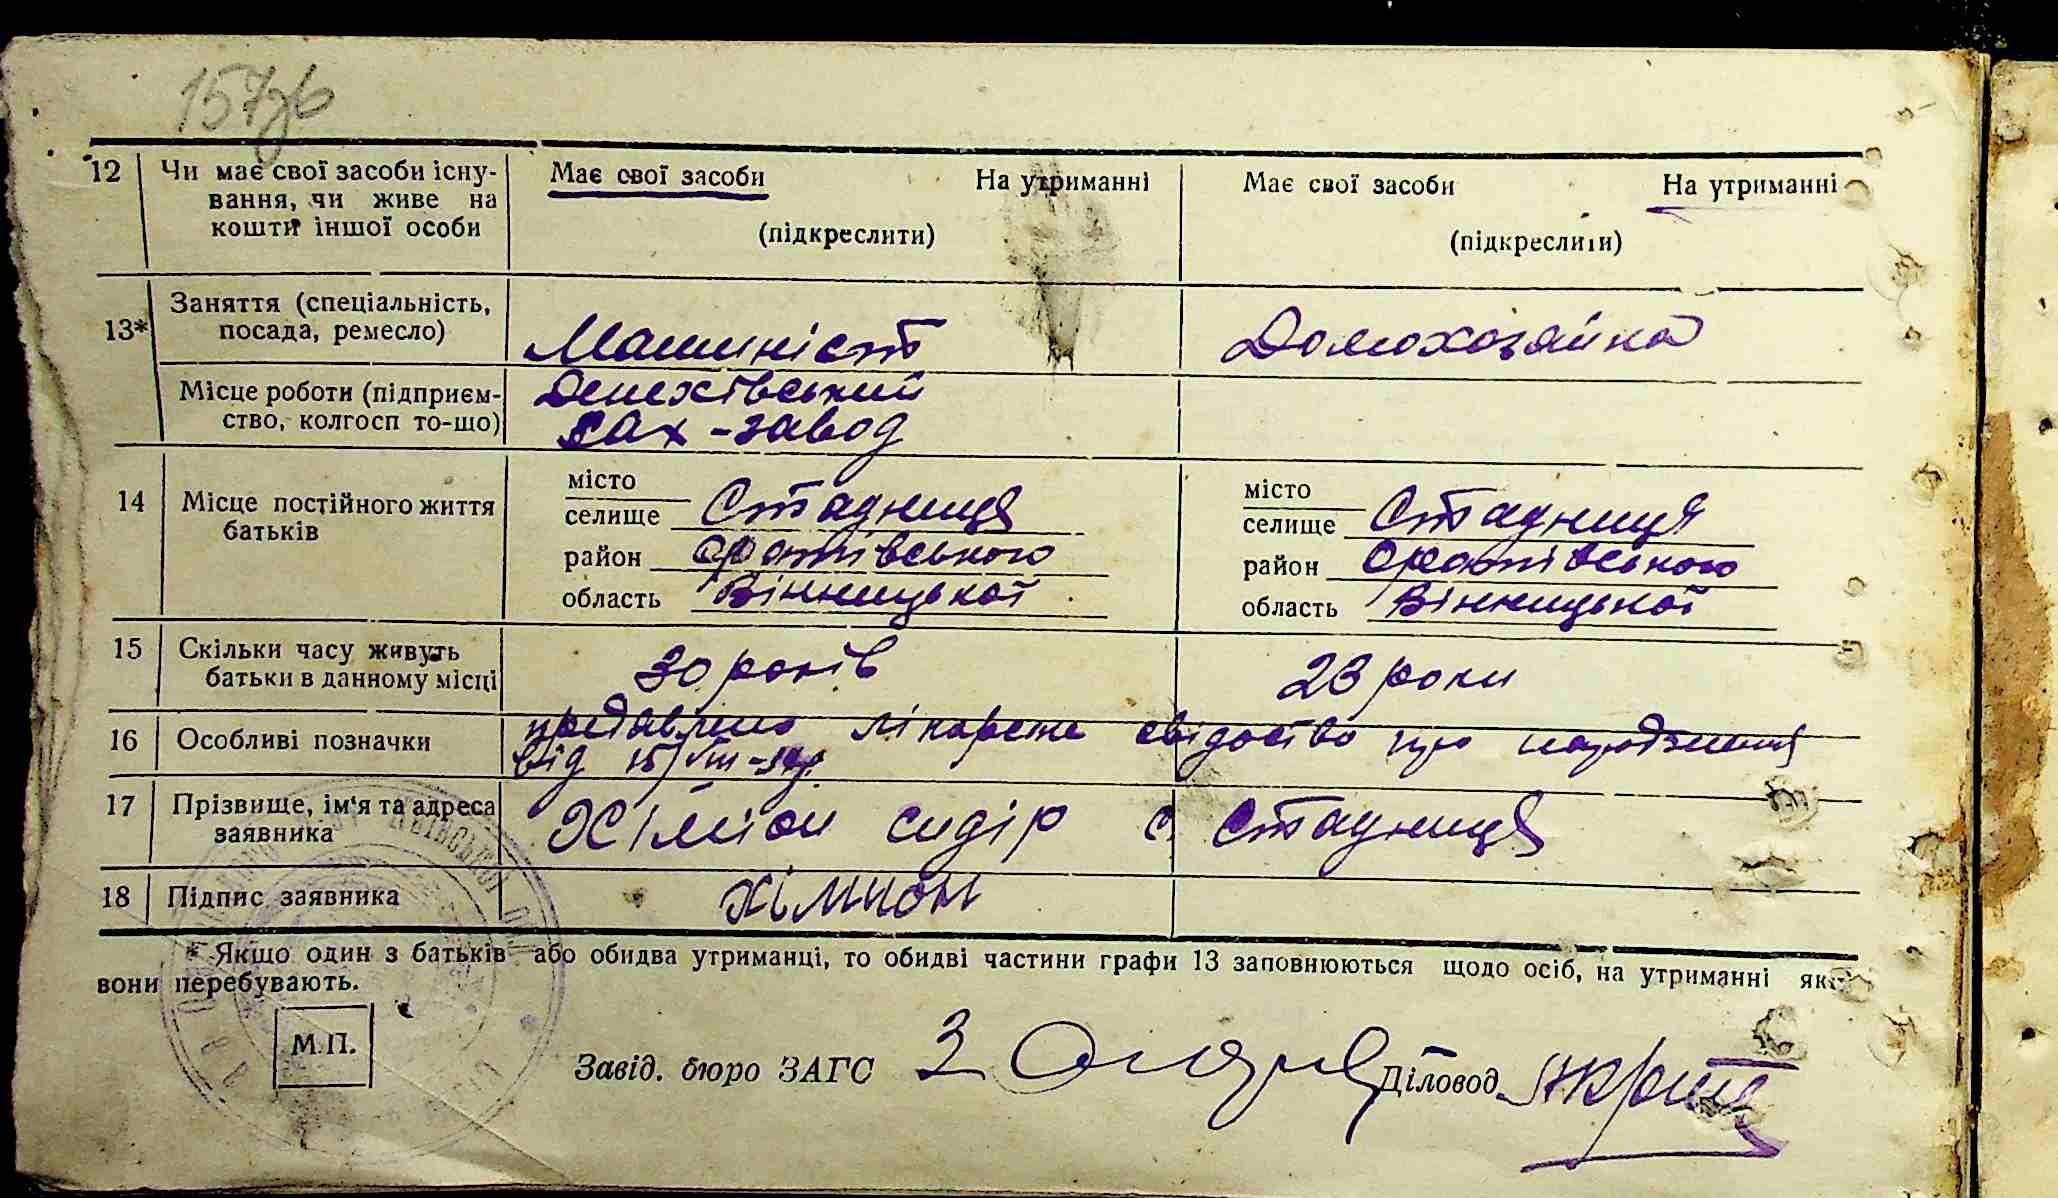 157зв
12 Чи має свої засоби існу- Має свої засоби На утриманні Має свої засоби На утриманні
вання, чи живе на
кошти іншої особи (підкреслити) (підкреслити)
Заняття (спеціальність,
13* посада, ремесло) Машиніст Домохозяйка
Місце роботи (підприєм- Денехівський
ство, колгосп то-що) Сах-завод
місто місто
14 Місце постійного життя селище Стадниця селище Стадниця
батьків район Оратівського район Оратівського
область Вінницької область Вінницької
15 Скільки часу живуть 30 років 23 роки
батьки в данному місці
16 Особливі позначки предявлено лікарське свідоство про народження
від 15/VIII-
17 Прізвище, ім'я та адреса Хіміон сидір с Стадниця
заявника
18 Підпис заявника Хімион
* Якщо один з батьків або обидва утриманці, то обидві частини графи 13 заповнюються щодо осіб, на утриманні яких
вони перебувають.
М.П.
Завід. бюро ЗАГС Діловод